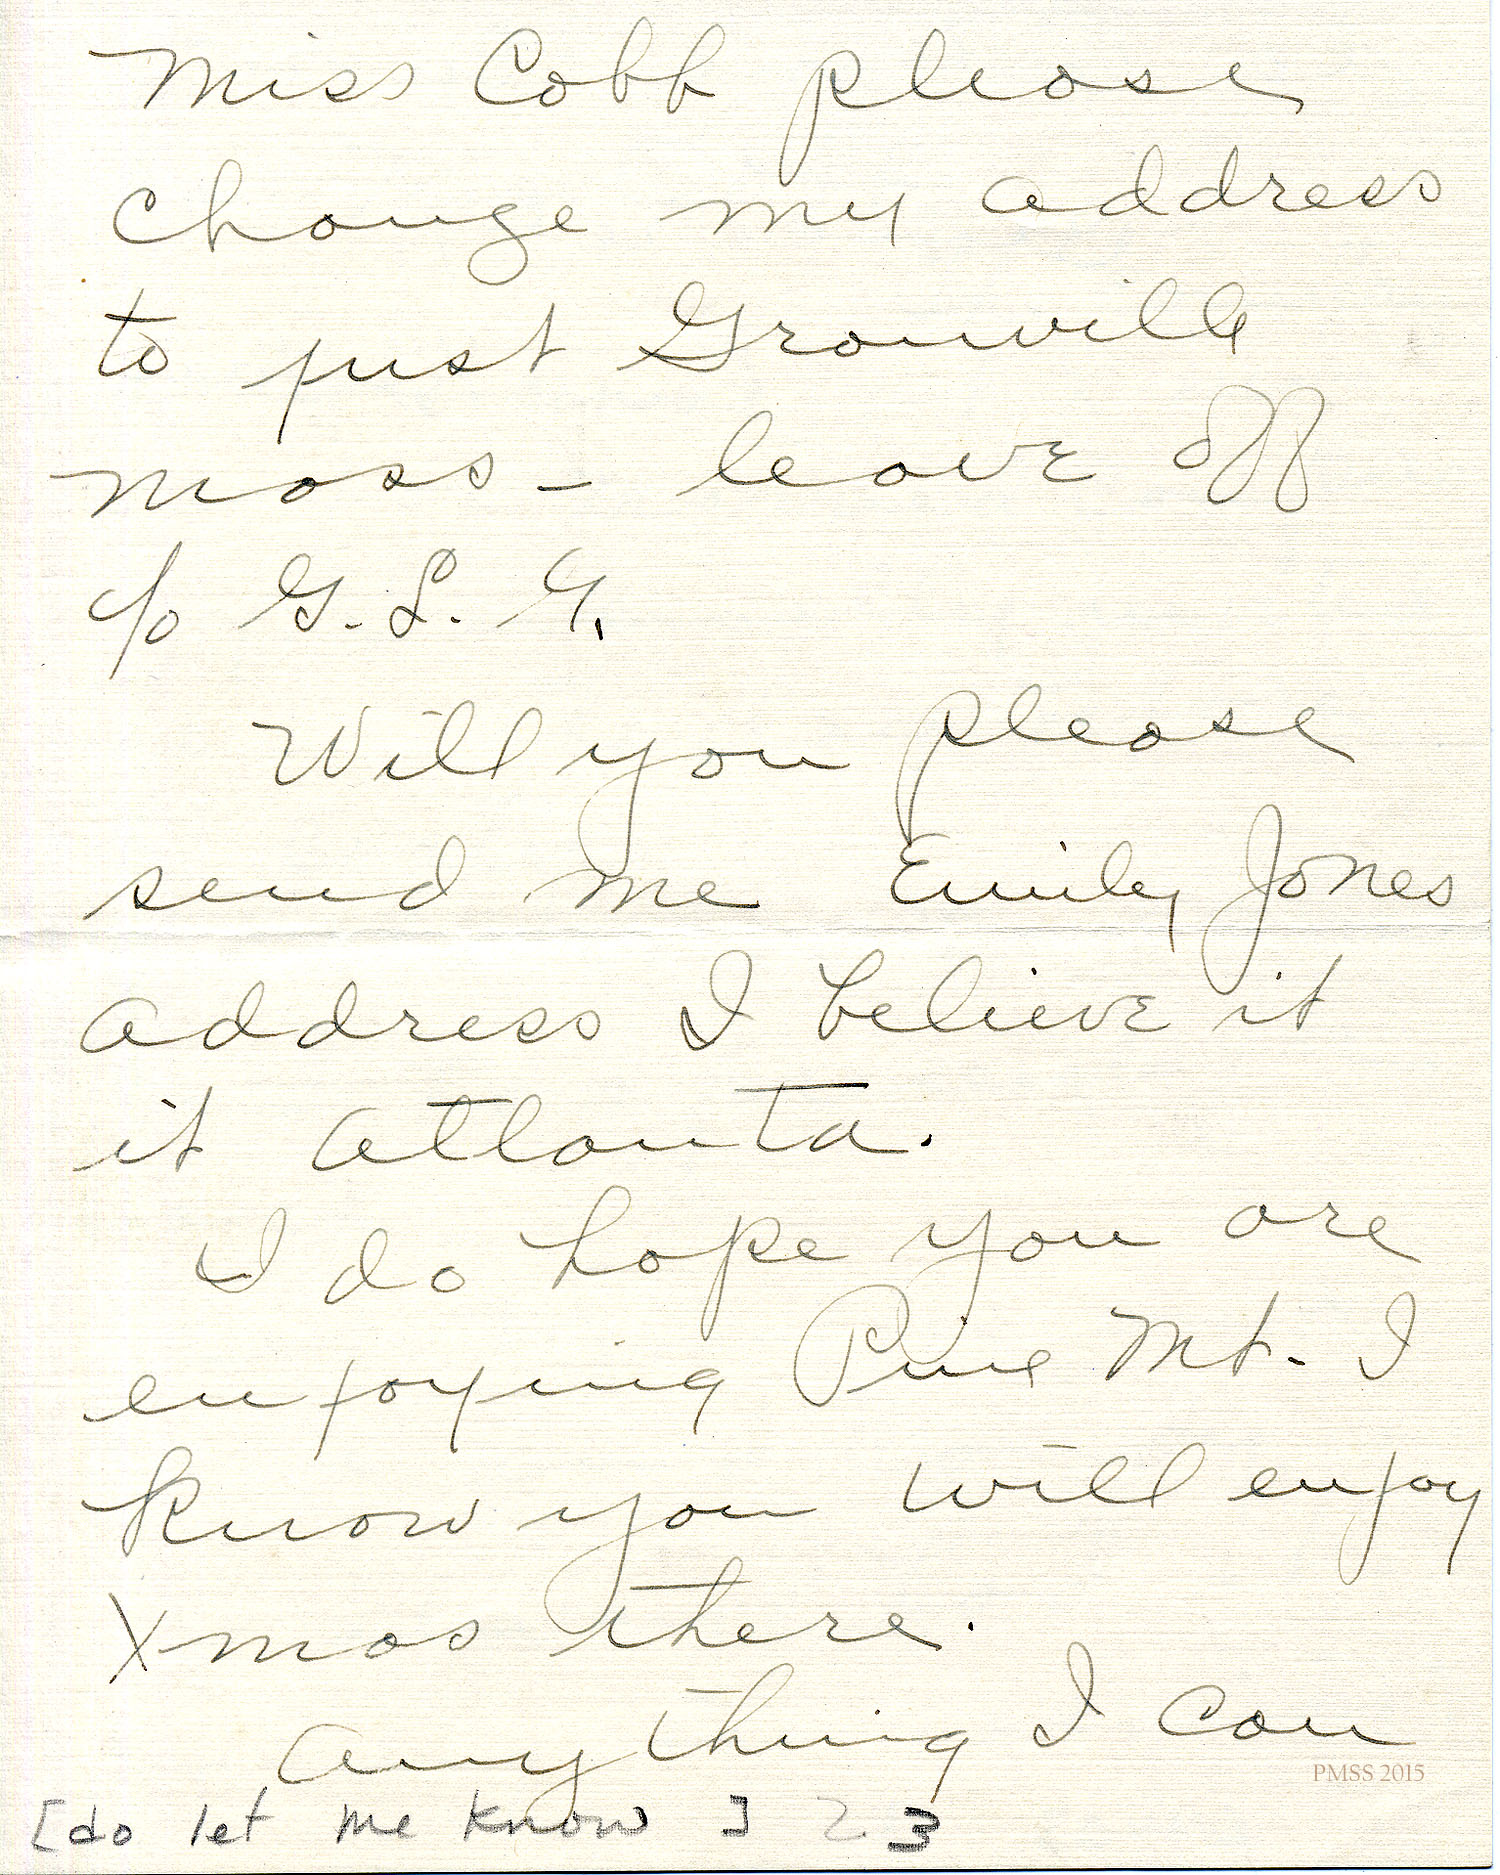 Miss Cobb please
change my address
to just Granville
Mass - leave off
c/o G. L. G.
Will you please
send me Emily Jones
address I believe it
it Atlanta.
I do hope you are
enjoying Pine Mt. I
know you will enjoy
Xmas there.
Anything I can
PMSS 2015
[do let me know] 2 3